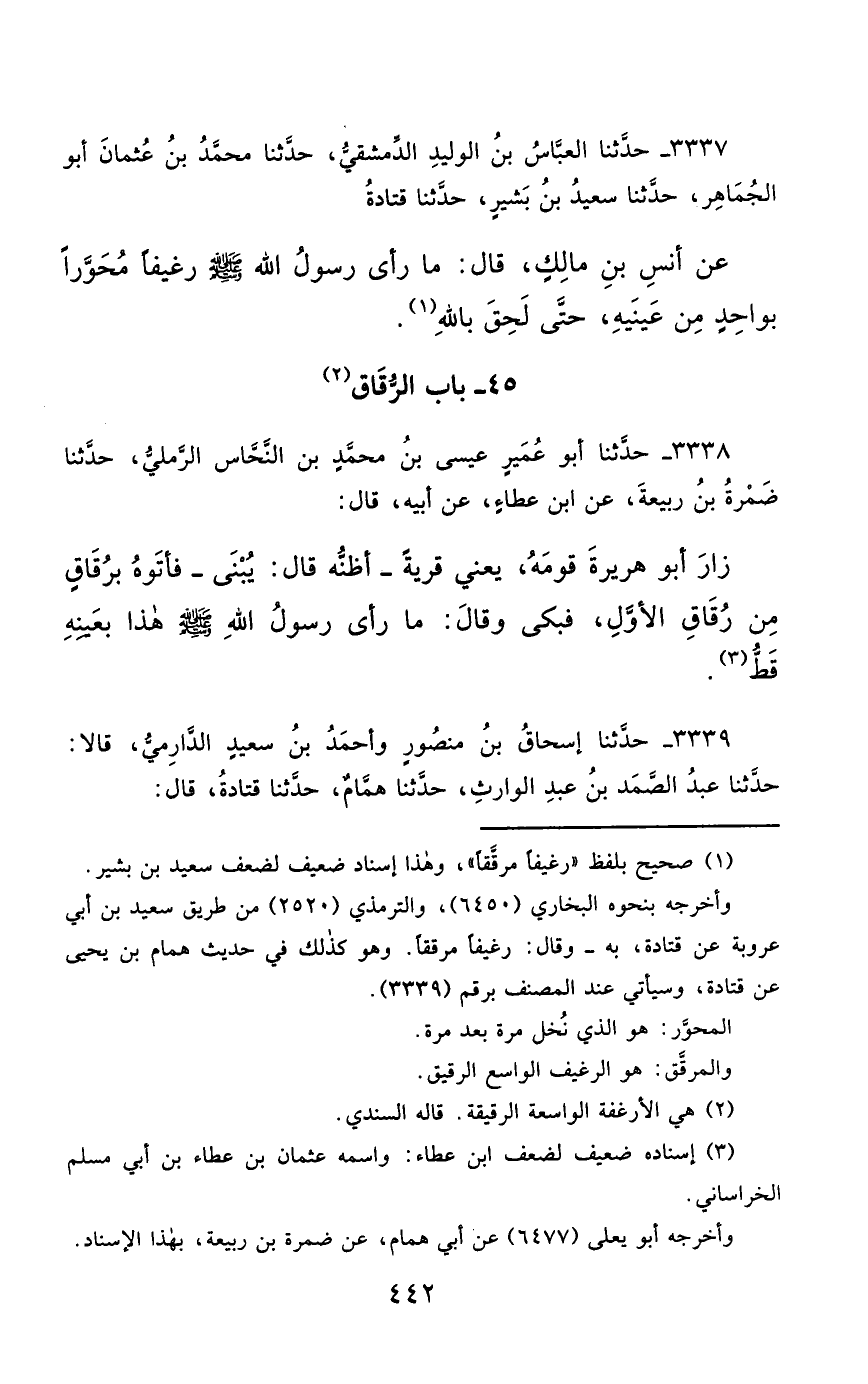 ٣٣٣٧ـ حدَّثنا العبَّاسُ بنُ الوليدِ الدِّمشقيُّ، حدَّثنا محمَّدُ بنُ عُثمانَ أبو
الجُمَاهِر، حدَّثنا سعيدُ بنُ بَشيرٍ، حدَّثنا قتادةُ
عن أنسِ بنِ مالِكٍ، قال: ما رأى رسولُ الله ﷺ رغيفاً مُحَوَّراً
بواحِدٍ مِن عَينَيهِ، حتَّى لَحِقَ باللهِ(١).
٤٥ـ باب الرُّقَاق(٢)
٣٣٣٨ـ حدَّثنا أبو عُمَيرٍ عيسى بنُ محمَّدٍ بن النَّحَّاس الرَّمليُّ، حدَّثنا
ضَمْرةُ بنُ ربيعةَ، عن ابن عطاءٍ، عن أبيه، قال:
زارَ أبو هريرةَ قومَهُ، يعني قريةً ـ أظنُّه قال: يُبْنَى ـ فأتَوهُ برُقَاقٍ
مِن رُقَاقِ الأوَّلِ، فبكى وقالَ: ما رأى رسولُ اللهِ ﷺ هٰذا بعَينِهِ
قَطُّ(٣).
٣٣٣٩ـ حدَّثنا إسحاقُ بنُ منصُورٍ وأحمَدُ بنُ سعيدٍ الدَّارِميُّ، قالا:
حدَّثنا عبدُ الصَّمَد بنُ عبدِ الوارثِ، حدَّثنا همَّامٌ، حدَّثنا قتادةُ، قال:
(١) صحيح بلفظ «رغيفاً مرقَّقاً»، وهٰذا إسناد ضعيف لضعف سعيد بن بشير.
وأخرجه بنحوه البخاري (٦٤٥٠)، والترمذي (٢٥٢٠) من طريق سعيد بن أبي
عروبة عن قتادة، به ـ وقال: رغيفاً مرققاً. وهو كذٰلك في حديث همام بن يحيى
عن قتادة، وسيأتي عند المصنف برقم (٣٣٣٩).
المحوَّر: هو الذي نُخل مرة بعد مرة.
والمرقَّق: هو الرغيف الواسع الرقيق.
(٢) هي الأرغفة الواسعة الرقيقة. قاله السندي.
(٣) إسناده ضعيف لضعف ابن عطاء: واسمه عثمان بن عطاء بن أبي مسلم
الخراساني.
وأخرجه أبو يعلى (٦٤٧٧) عن أبي همام، عن ضمرة بن ربيعة، بهٰذا الإسناد.
٤٤٢